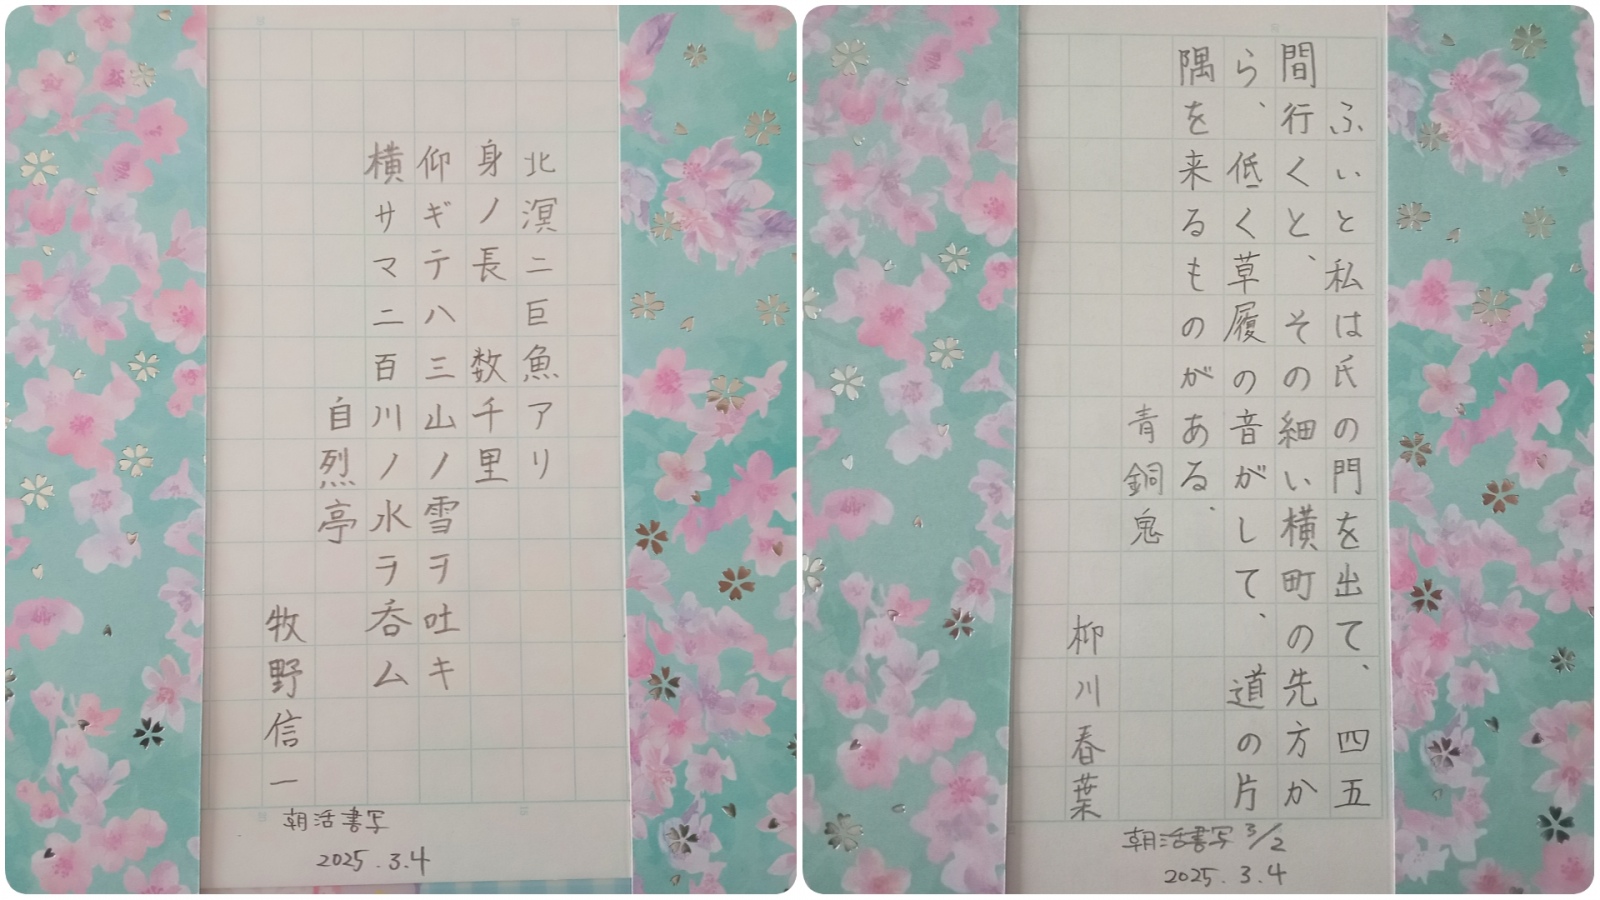 北溟ニ巨魚アリ
身ノ長 数千里
仰ギテハ三山ノ雪ヲ吐キ
横サマニ百川ノ水ヲ呑ム
自烈亭
牧野信一
朝活書写
2025.3.4
ふいと私は氏の門を出て、四五
間行くと、その細い横町の先方か
ら、低く草履の音がして、道の片
隅を来るものがある。
青銅鬼
柳川春葉
朝活書写 3/2
2025.3.4